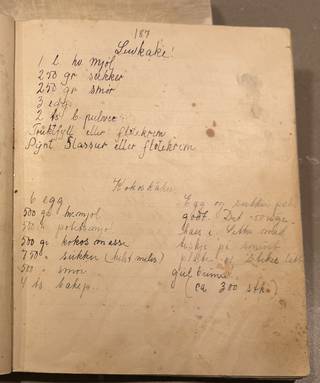 187
Lewkake!
1 l hv. mjol
250 gr sukker
250 gr smør
3 egg
2 ts b. pulver
Fruktfyll eller fløtekrem
Pynt Glassur eller fløtekrem
Kokoskaker
6 egg
500 gr hv.mjøl
500 " potetmjøl
500 gr kokosmasse
750 " sukker
500 " smør
4 ts bakep.
Egg og sukker
godt. Det
Has i. Settes med
på smurt
plate og stekes lett
gul brune
(ca 300 stk.)